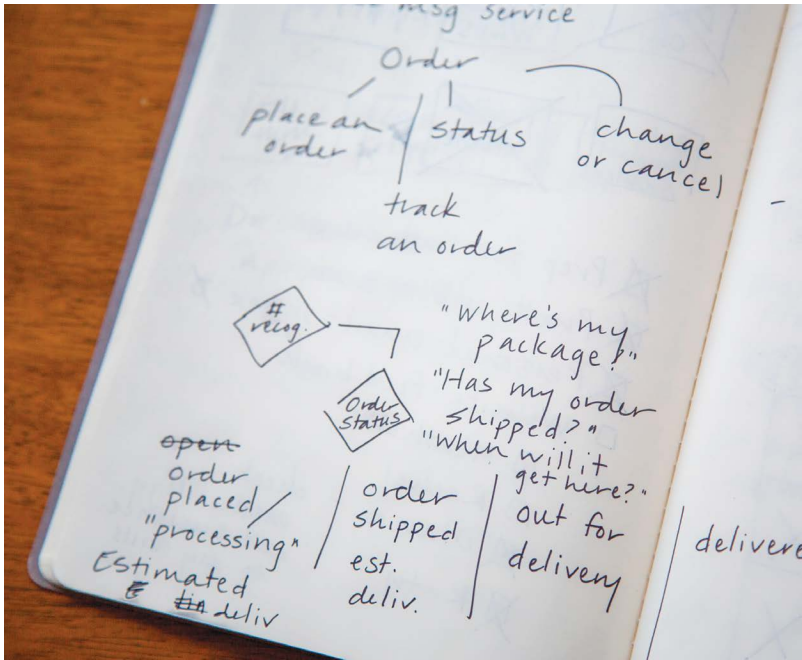 msg service
Order
place an
order
status
change
or cancel
track
an order
#
recog.
"Where's my
package?"
Order
Status
"Has my order
shipped?"
"When will it
get here?"
open
order
placed
"processing"
Estimated
deliv
order
shipped
est.
deliv.
out for
delivery
delivere